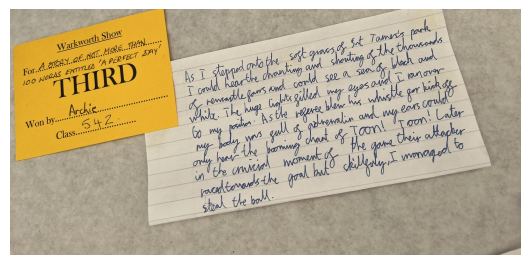 Warkworth Show
For A STORY OF NOT MORE THAN
100 WORDS ENTITLED 'A PERFECT DAY'
THIRD
Won by Archie
Class 542
As I stepped onto the soft grass of St James's park
I could hear the chanting and shouting of the thousands
of newcastle fans and could see a sea of black and
white. The huge lights filled my eyes and I ran over
to my position. As the referee blew his whistle for kick off
my body was full of adrenalin and my ears could
only hear the booming chant of Toon! Toon! Later
in the crucial moment of the game their attacker
raced towards the goal but skilfully, I managed to
steal the ball.